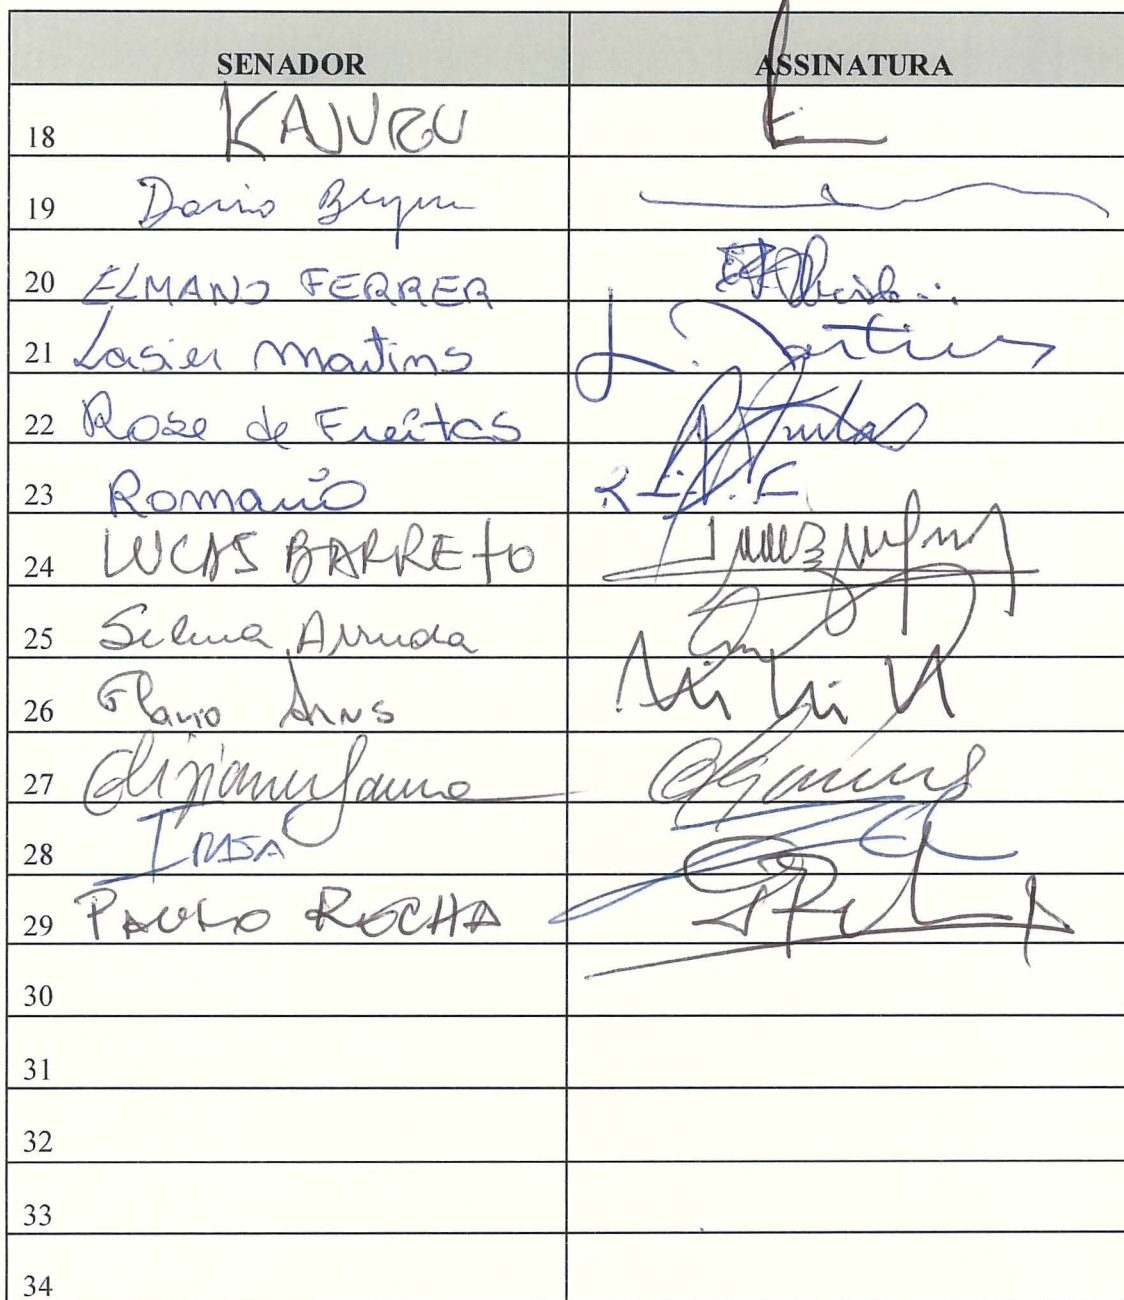 SENADOR ASSINATURA
18 KAJURU
19 Dario Berger
20 ELMANO FERRER
21 Lasier Martins L. Martins
22 Rose de Freitas RFreitas
23 Romário
24 LUCAS BARRETO
25 Selma Arruda
26 Flavio Arns
27 Eliziane Gama
28 IRAJÁ
29 PAULO ROCHA
30
31
32
33
34